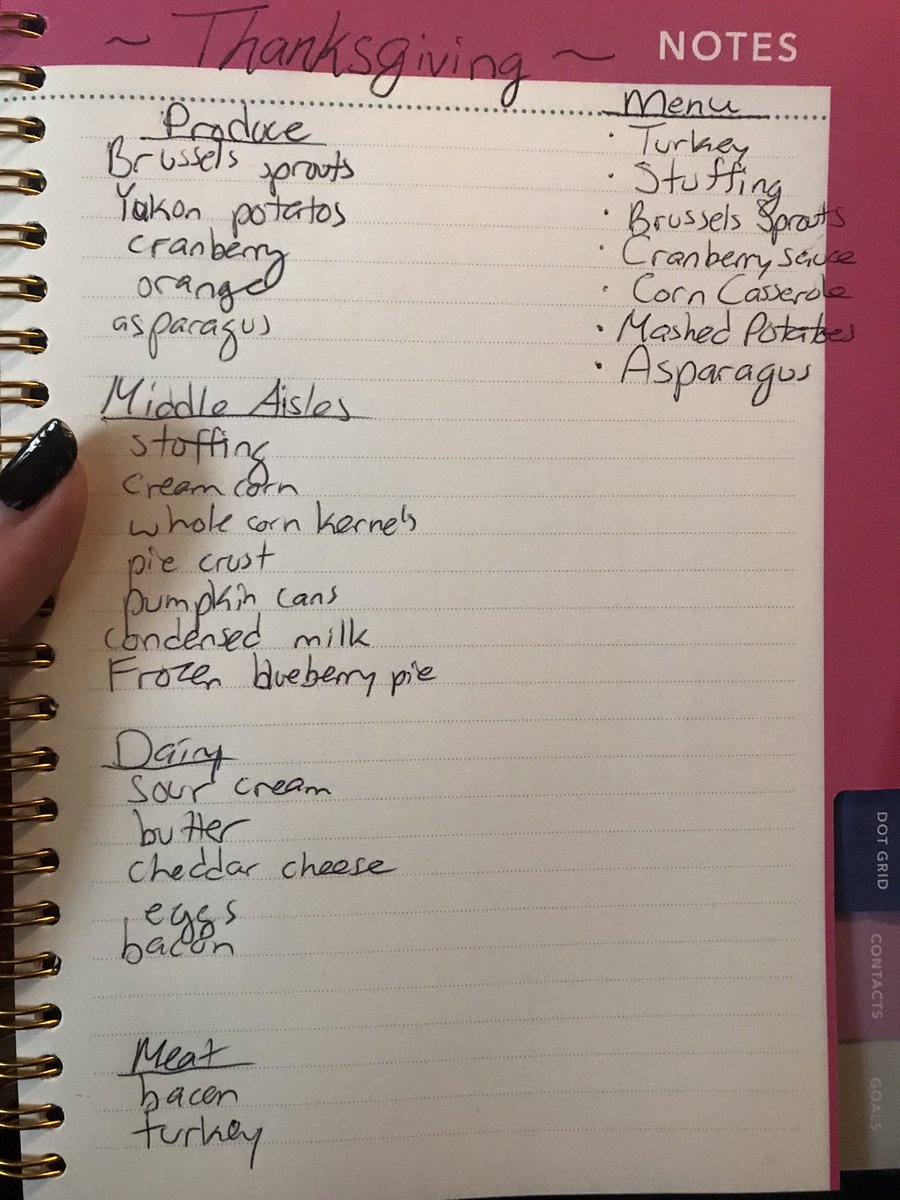 ~ Thanksgiving ~
NOTES
Produce
Brussels sprouts
Yakon potatos
cranberry
orange
asparagus
Middle Aisles
stuffing
cream corn
whole corn kernels
pie crust
pumpkin cans
condensed milk
Frozen blueberry pie
Dairy
sour cream
butter
cheddar cheese
eggs
bacon
Meat
bacon
turkey
Menu
· Turkey
· Stuffing
· Brussels Sprouts
· Cranberry Sauce
· Corn Casserole
· Mashed Potatoes
· Asparagus
DOT GRID
CONTACTS
GOALS